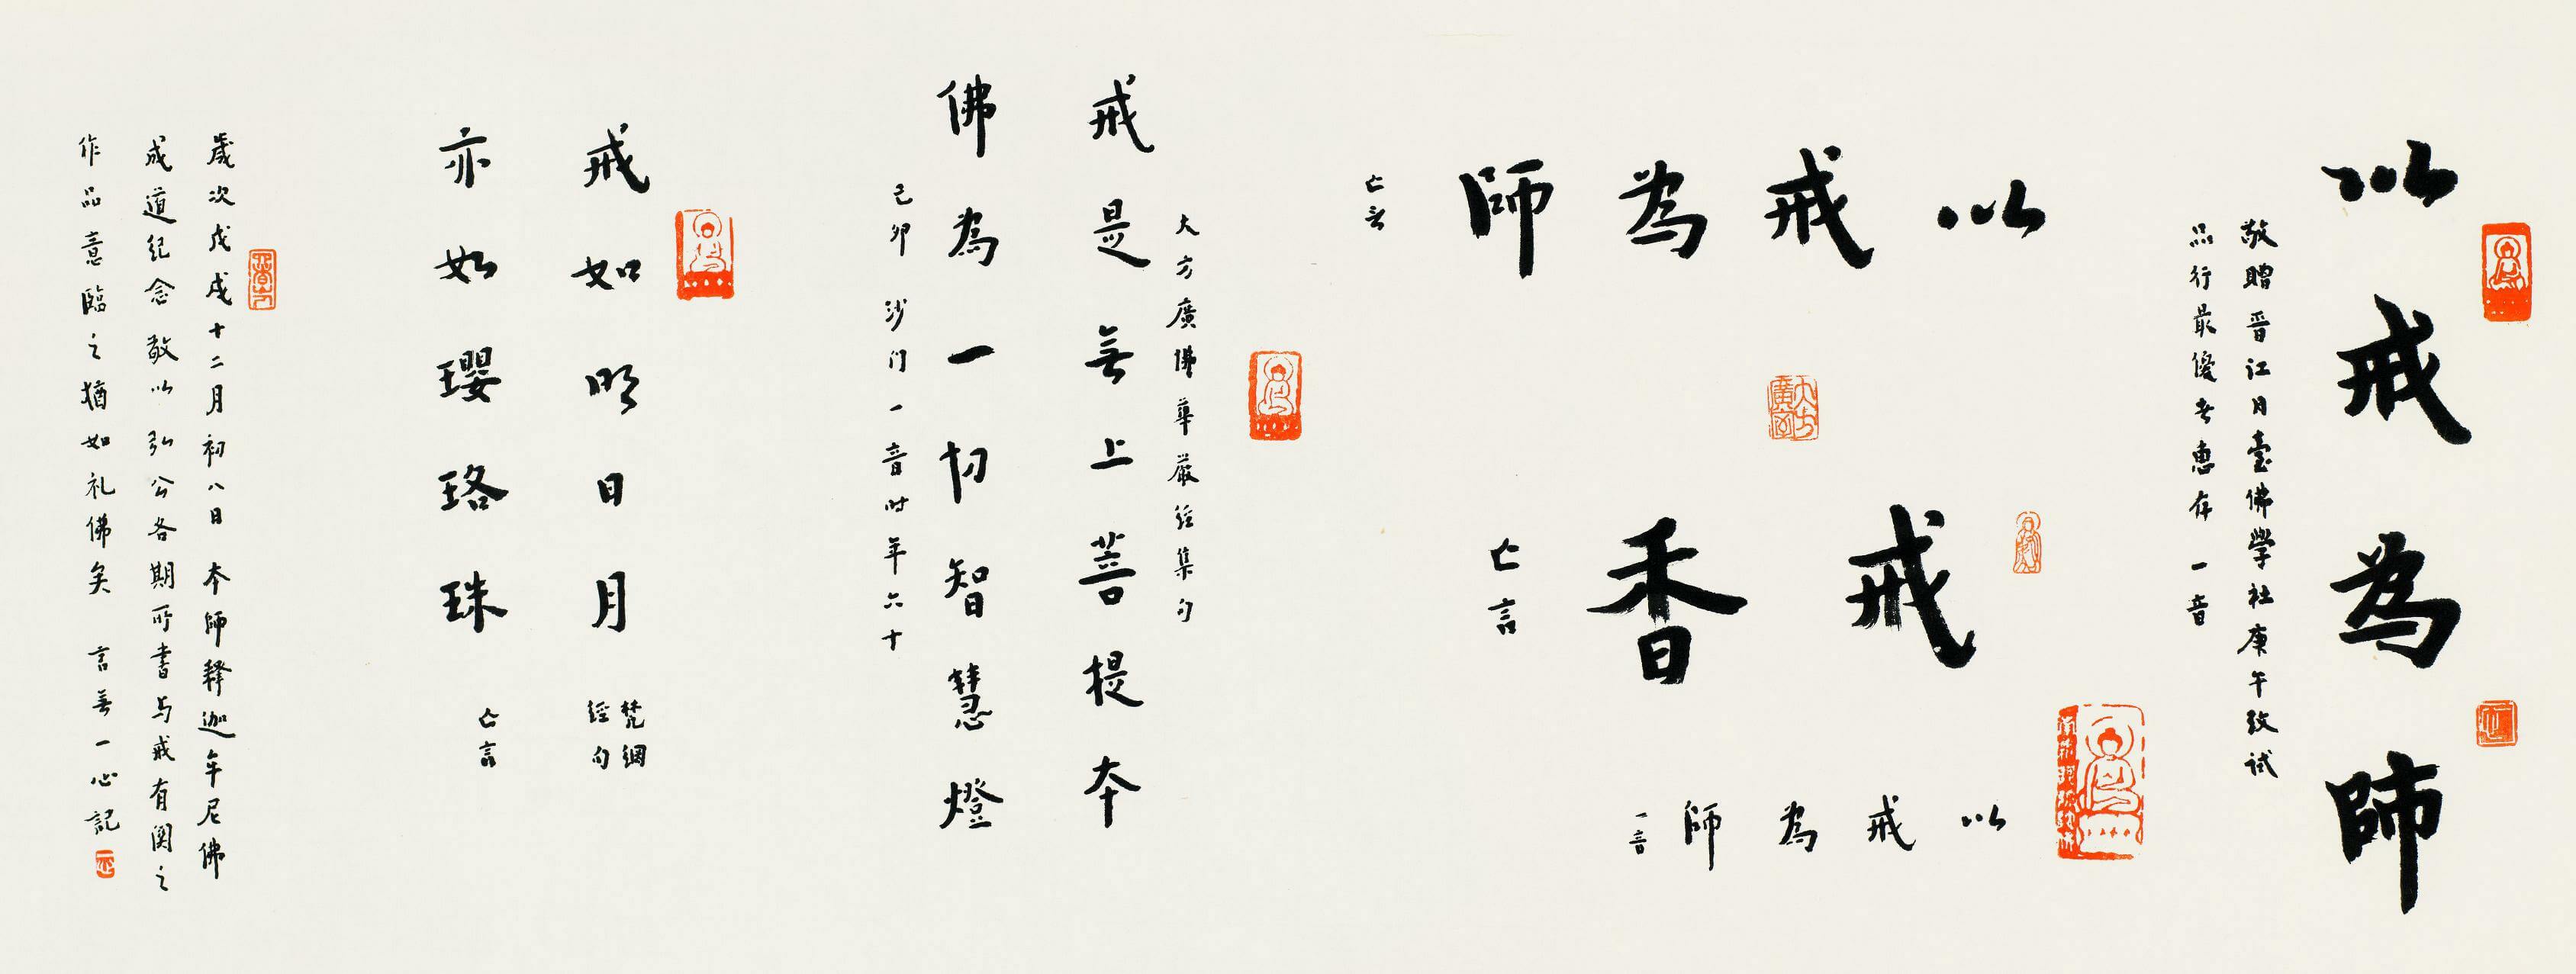 以戒為師
敬贈晉江月臺佛學社庚午致試
品行最優者惠存 一音
以戒為師
亡言
戒香
亡言
以戒為師
一音
大方廣佛華嚴經集句
戒是無上菩提本
佛為一切智慧燈
己卯 沙门一音时年六十
戒如明日月
梵網
經句
亦如瓔珞珠
亡言
歲次戊戌十二月初八日 本師釋迦牟尼佛
成道纪念敬以弘公各期所書与戒有関之
作品意臨之猶如礼佛矣 言無一心記